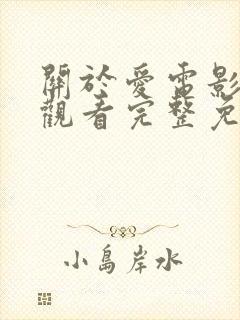 關於愛電影
觀看完整免
小島岸水